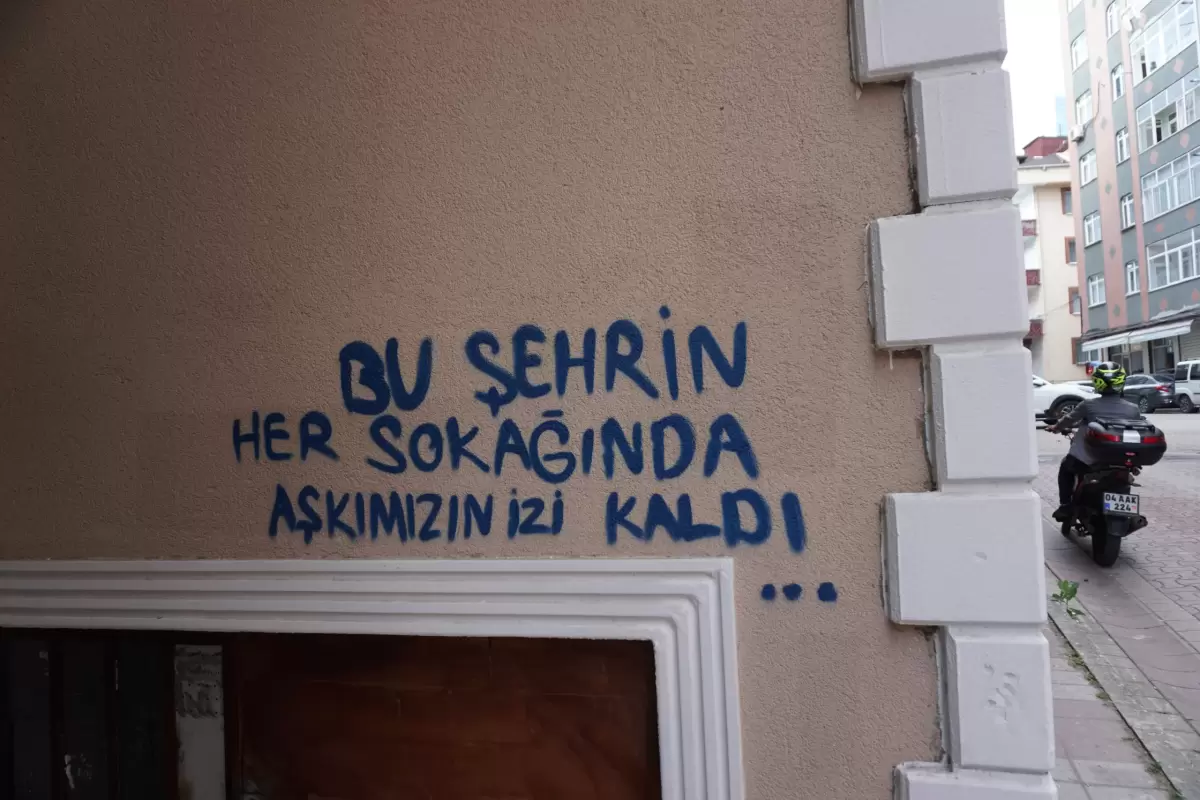 BU ŞEHRİN
HER SOKAĞINDA
AŞKIMIZIN İZİ KALDI
...
04 AAK
224